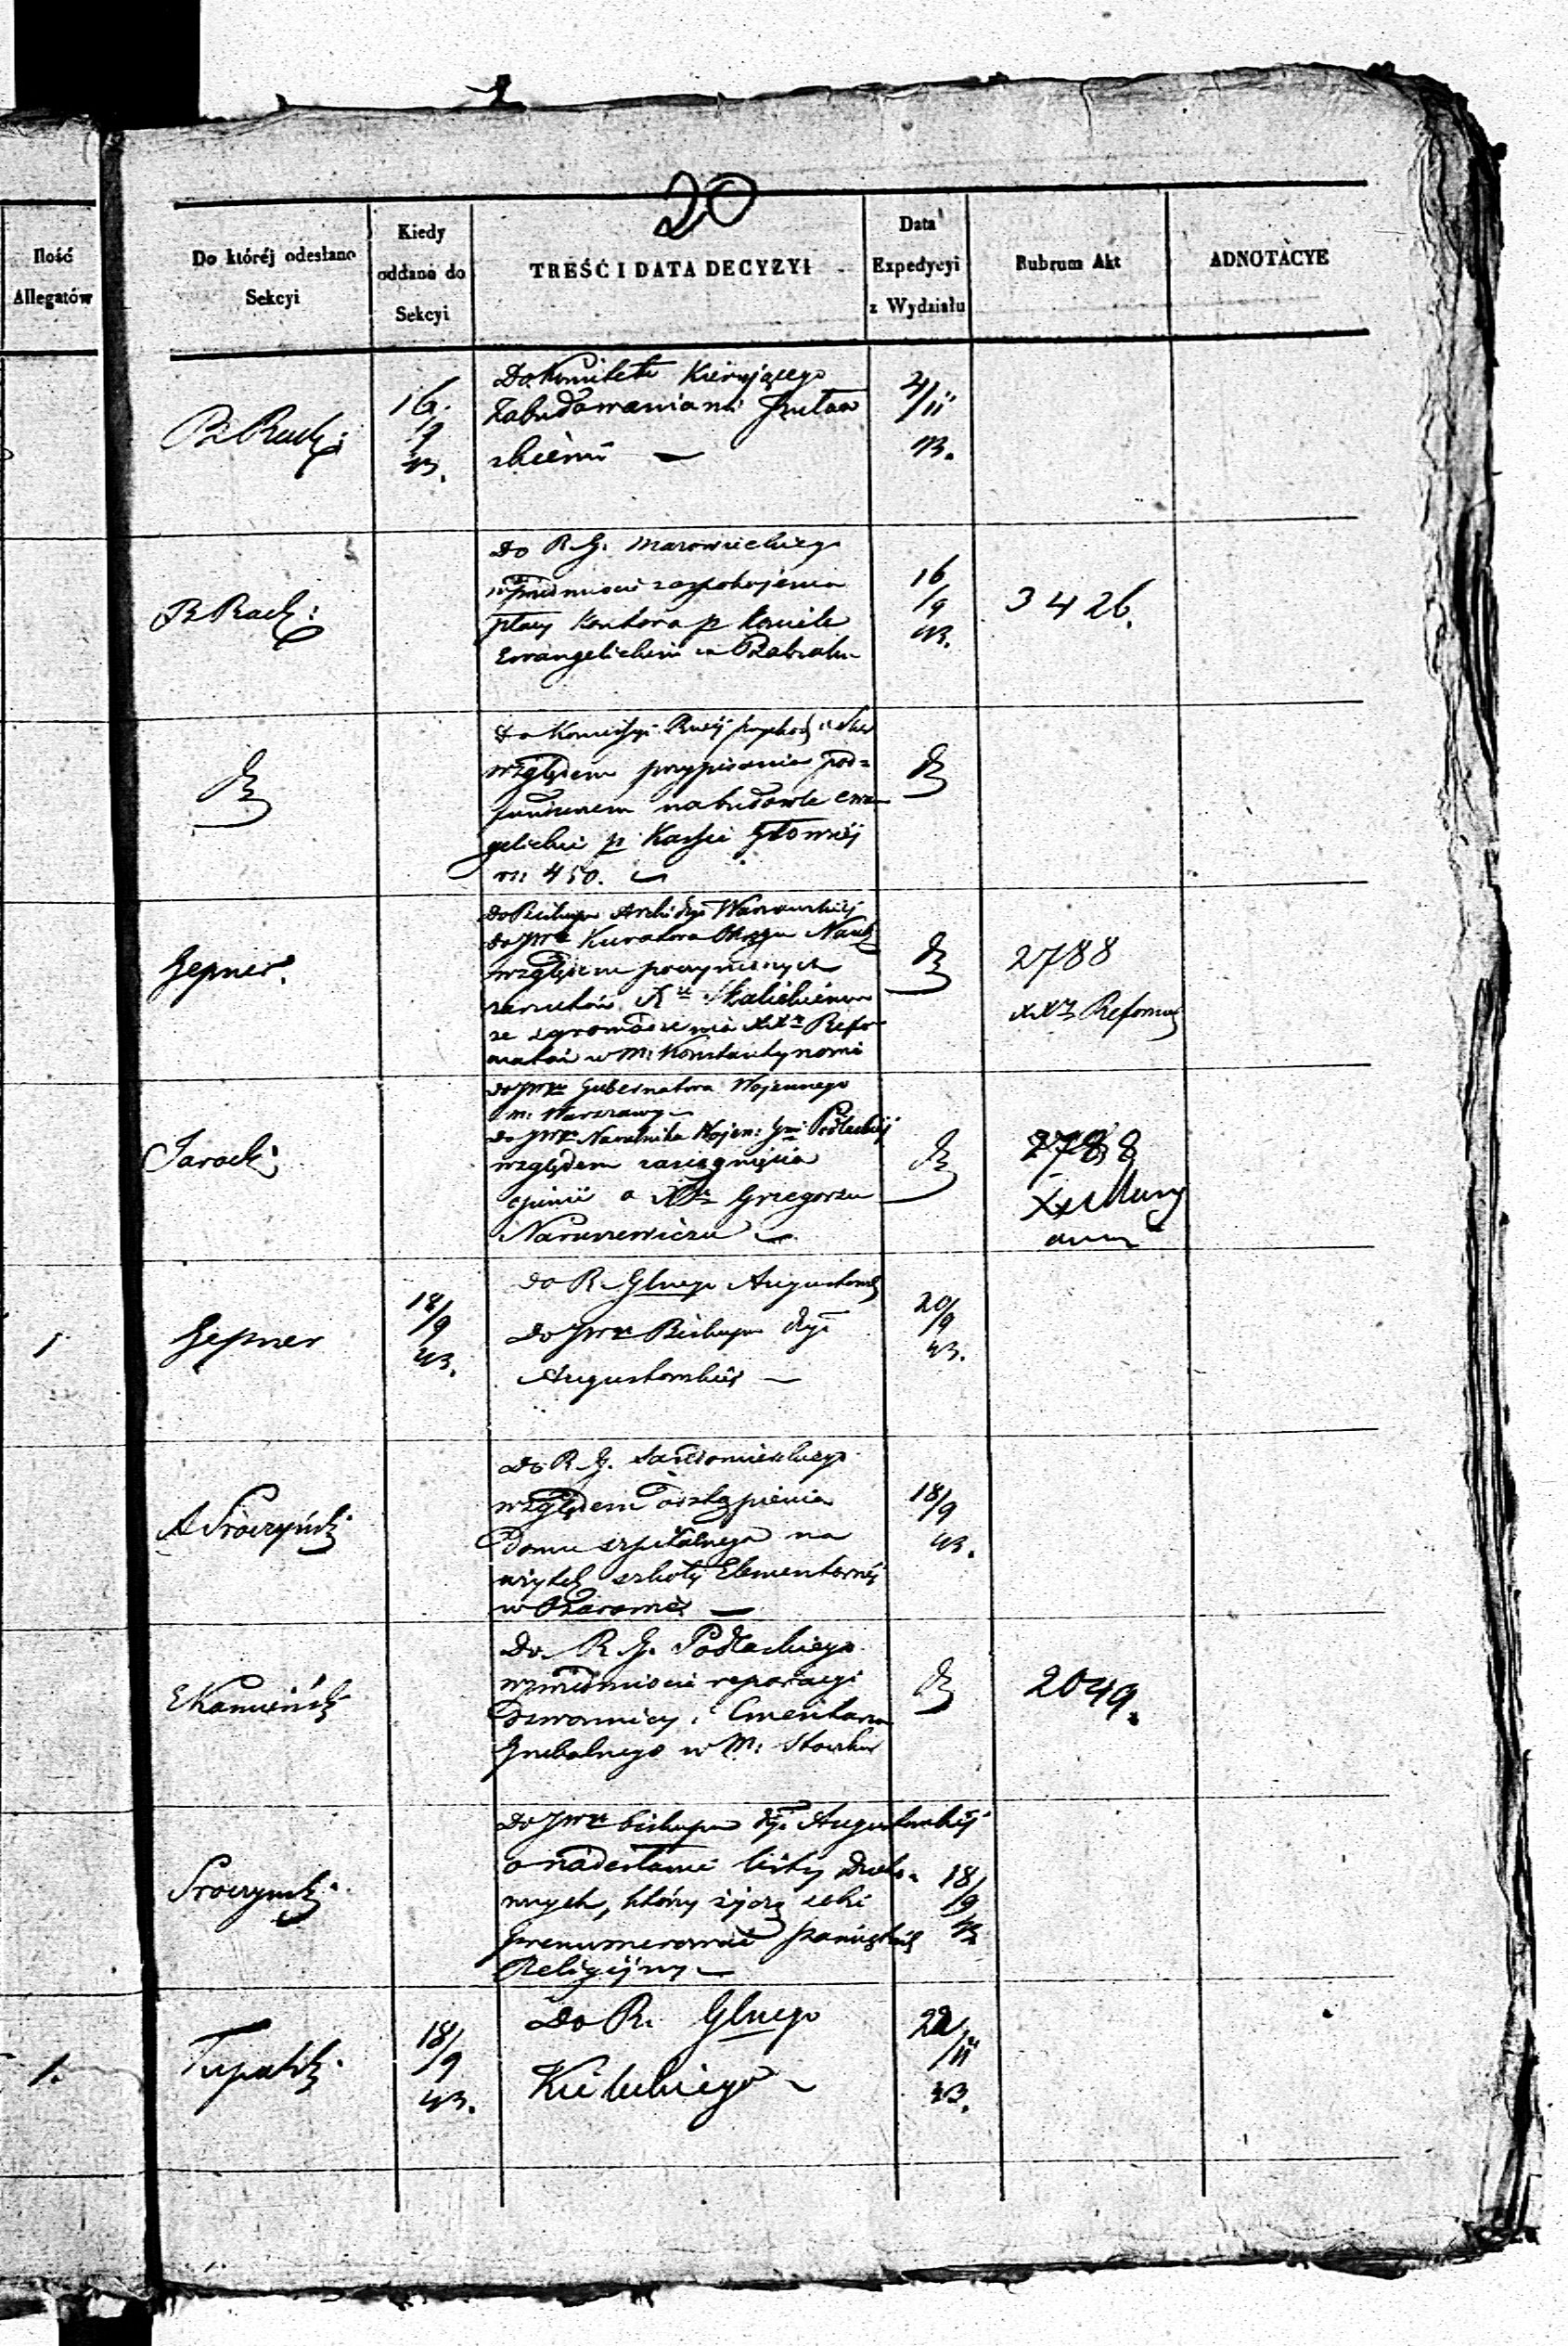 20
Ilość
Allegatów
Do któréj odesłano
Sekcyi
Kiedy
oddano do
Sekcyi
TREŚĆ I DATA DECYZYI
Data
Expedycyi
z Wydziału
Rubrum Akt
ADNOTACYE
16/9 43.
Do Komitetu Kierującego
Zabudowaniami
2/11 43.
Do R. G. Mazowieckiego
zaspokojenia
płacy Kantora p.
Ewangelickim w
16/9 43.
3426.
Do Komissyi
względem przypisania pod
funduszem na budowle ewan
gelickie p. Kassie Głównéj
rs: 450.
Gepner.
Do Biskupa Archidyi Warszawskiéj
do JWo Kuratora Okręgu Nauk
względem poczynionych
zarzutów Xu
ze zgromadzenia XXw Refor
matów w m: Konstantynowie
2788
XXw Reformat
Jarocki
do JWo Gubernatora Wojennego
m. Warszawy
do JWo Naczelnika Wojen: Gui Podlaskiéj
względem zasiągnięcia
opinii o Xu Grzegorzu
Naruszewiczu
2788
1
Gepner
18/9 43.
do R. Głnego Augustows
Do JWo Biskupa dyi
Augustowskiéj
20/9 43.
A Sroczyński
Do R. G. Sandomierskiego
względem odstąpienia
Domu szpitalnego na
użytek szkoły Elementarnéj
w Ożarowie
18/9 43.
E Kamiński
Do R. G. Podlaskiego
w przedmiocie reparacyi
Dzwonnicy i Cmentarza
Grzebalnego w m:
2049.
Sroczyński
Do JWo biskupa dyi Augustowskiéj
o nadesłanie listy Ducho-
wnych, którzy życzą sobie
prenumerować pamiętnik
Religijny
18/9 43
1.
Tupalski
18/9 43.
Do R. Głnego
Kieleckiego
22/11 43.